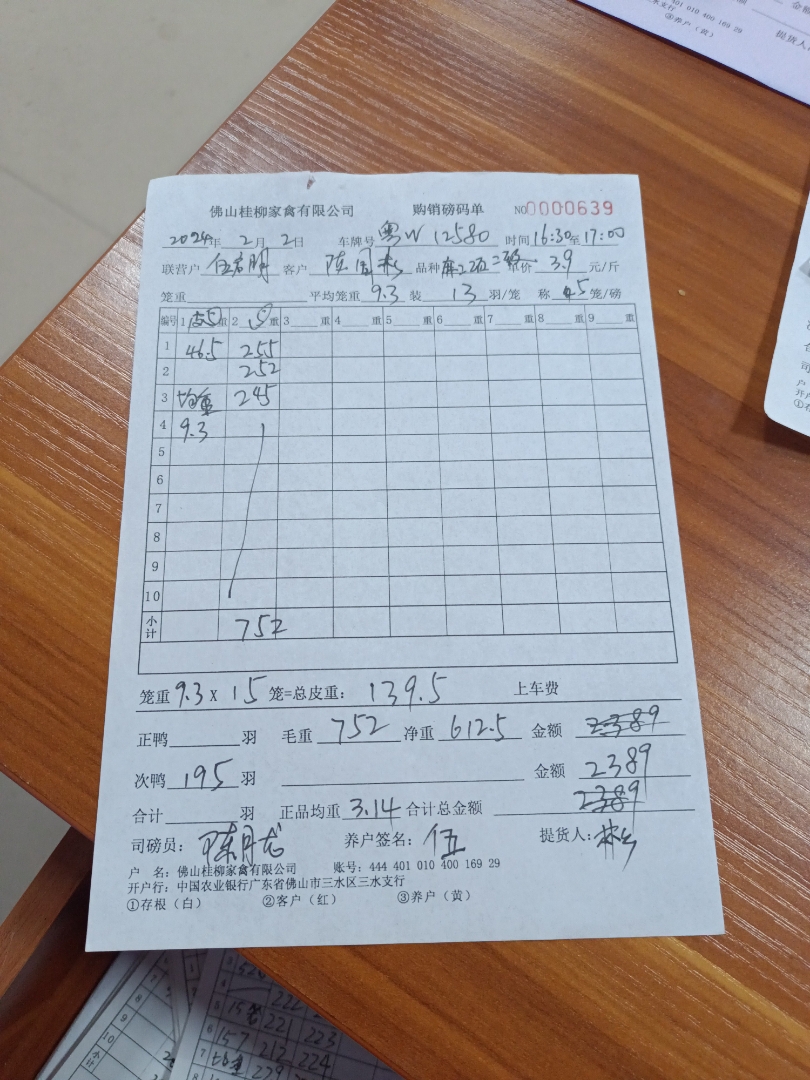 401 010 400 169 29
水支行
③养户（黄）
金额
提货人
佛山桂柳家禽有限公司 购销磅码单 NO0000639
2024年 2月 2日 车牌号 粤W 12580 时间16:30至17:00
联营户 伍 明 客户 陈 彬 品种 单价 3.9 元/斤
笼重 平均笼重 9.3 装 13 羽/笼 称 5 笼/磅
编号 1 重 2 重 3 重 4 重 5 重 6 重 7 重 8 重 9 重
1 46.5 255
2 252
3 均重 245
4 9.3
5
6
7
8
9
10
小计 752
笼重 9.3 X 15 笼=总皮重: 139.5 上车费
正鸭 羽 毛重 752 净重 612.5 金额 2389
次鸭 195 羽 金额 2389
合计 羽 正品均重 3.14 合计总金额 2389
司磅员: 陈月龙 养户签名: 伍 提货人: 彬
户 名: 佛山桂柳家禽有限公司 账号: 444 401 010 400 169 29
开户行: 中国农业银行广东省佛山市三水区三水支行
①存根（白） ②客户（红） ③养户（黄）
222
5 15 221 223
6 157 212 224
7 均重 229
8
9
10
小计